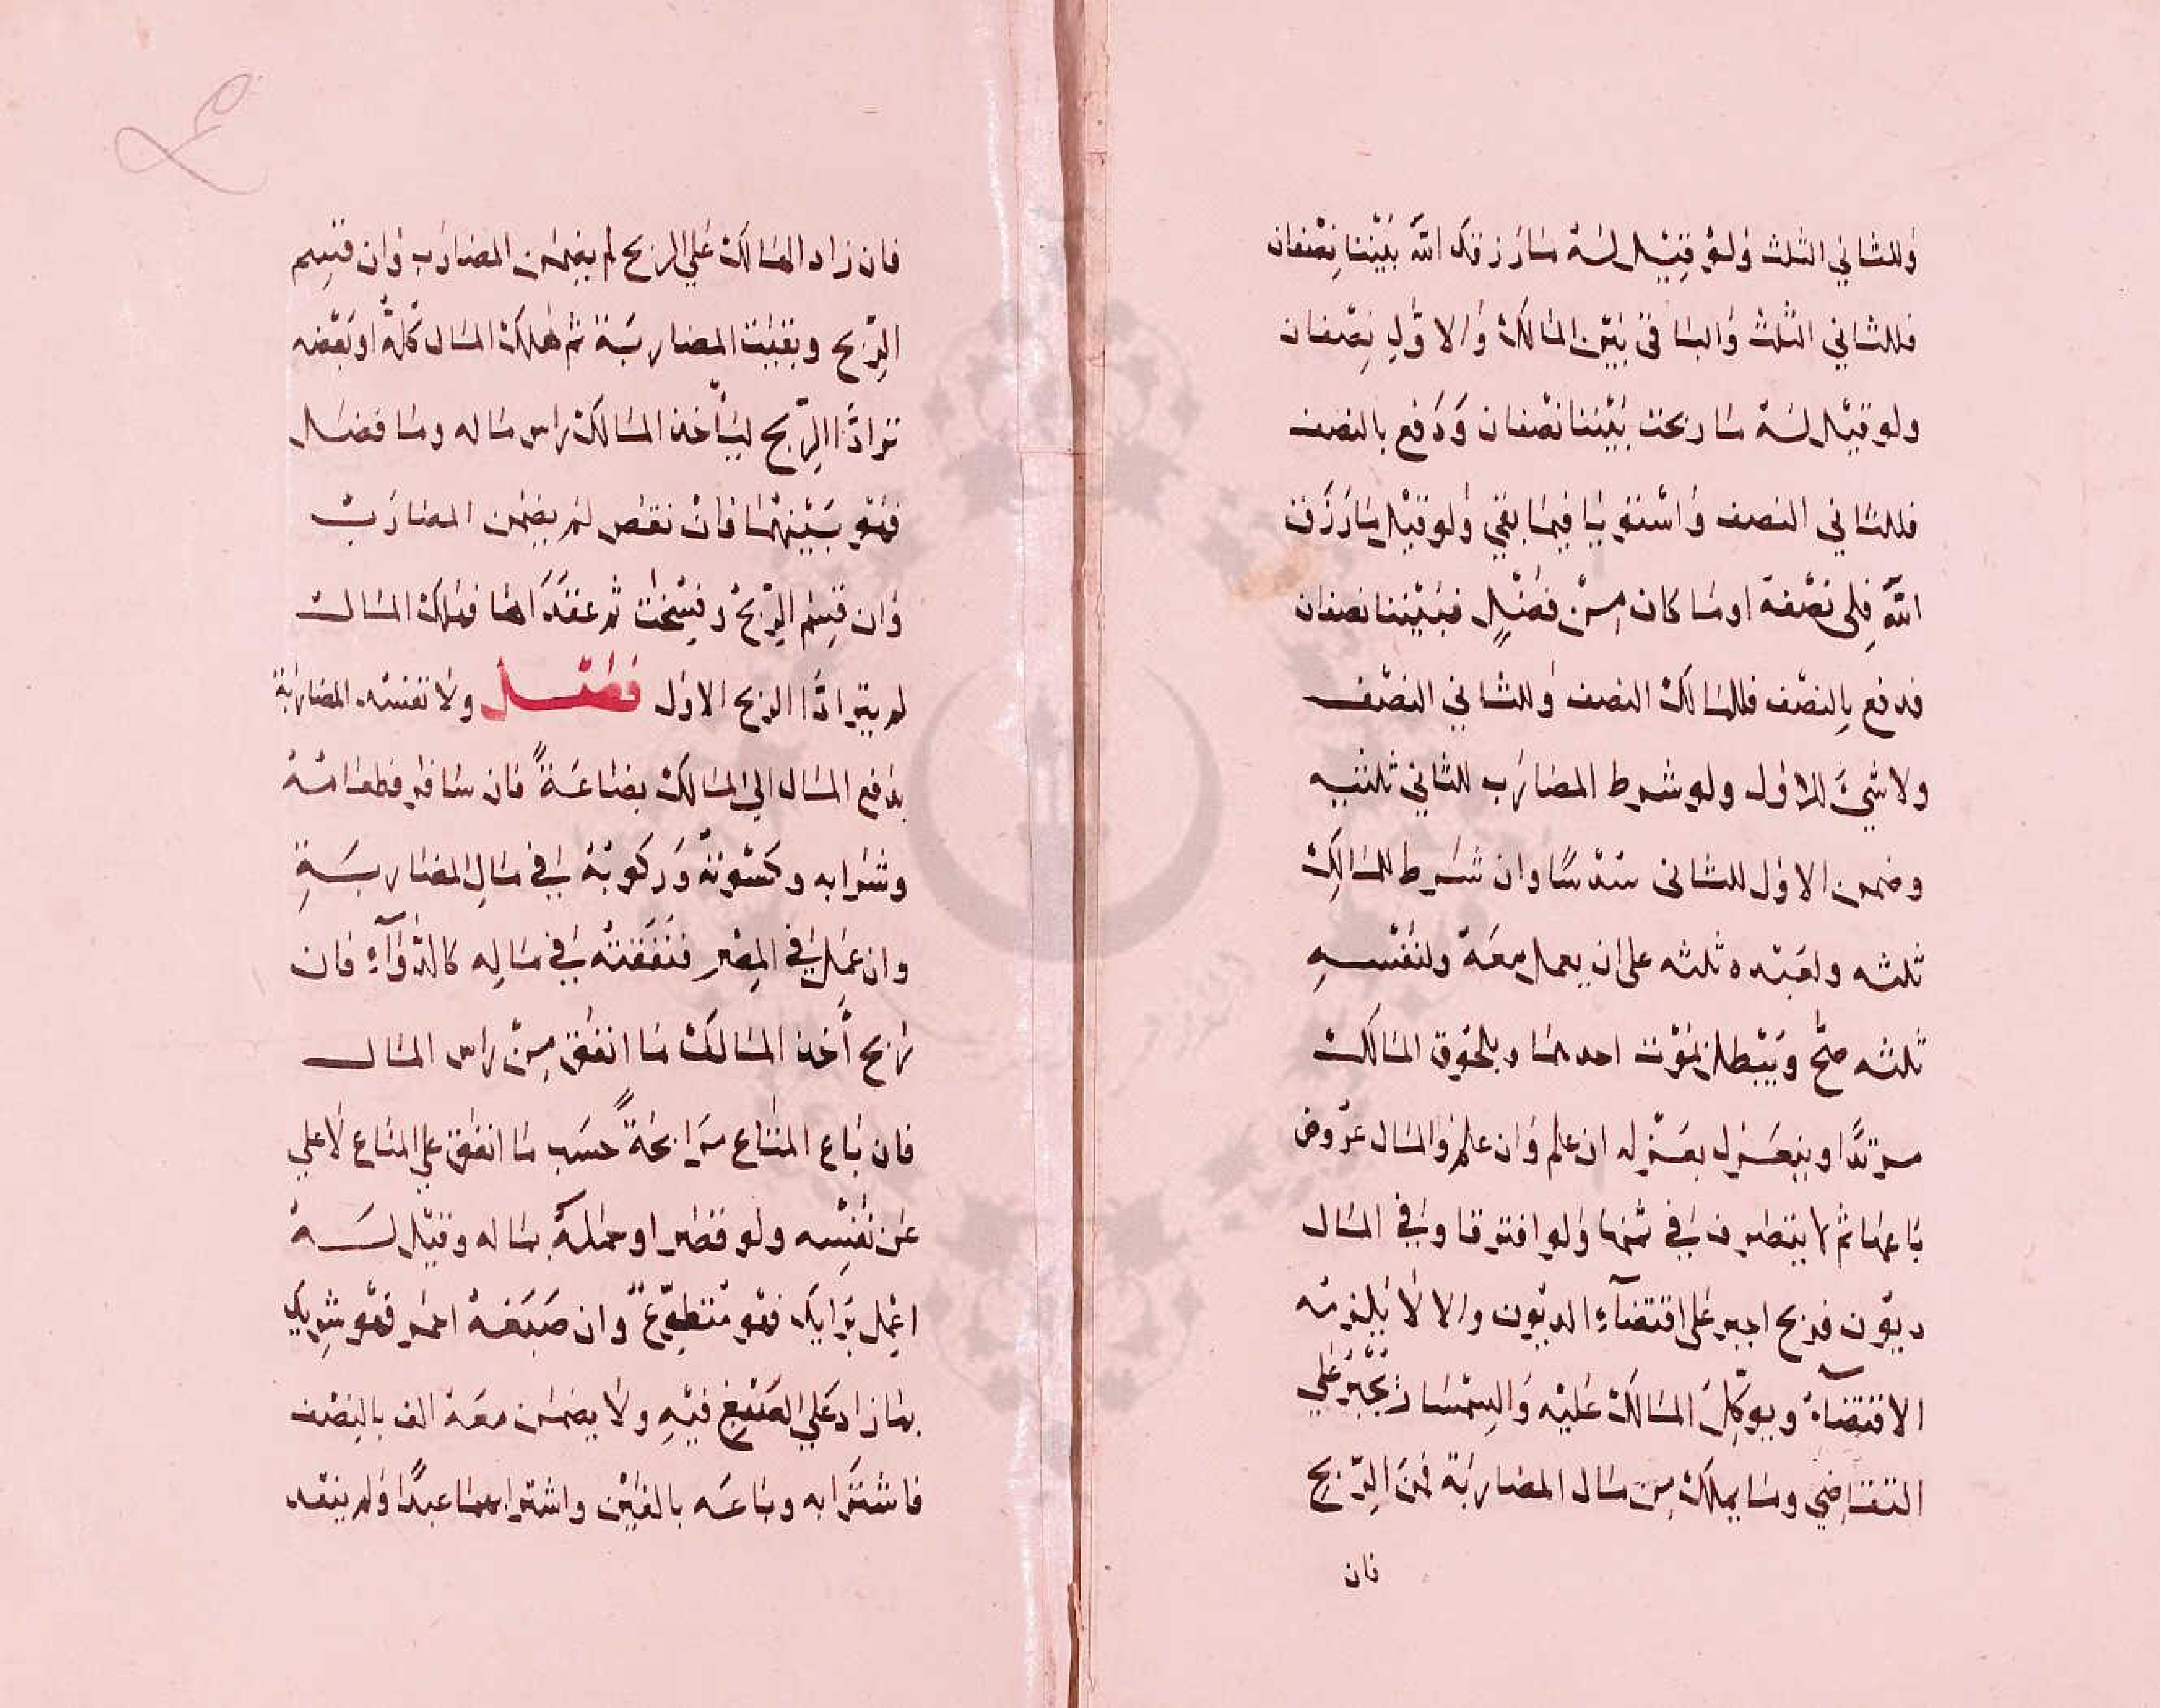 وللثاني الثلث ولو قيل له ما رزقك الله بيننا نصفان
فللثاني الثلث والباقي بين المالك والاول نصفان
ولو قيل له ما ربحت بيننا نصفان ودفع بالنصف
فللثاني النصف واستويا فيما بقي ولو قيل ما رزق
الله فلي نصفه او ما كان من فضل فبيننا نصفان
فدفع بالنصف فللمالك النصف وللثاني النصف
ولا شيء للاول ولو شرط المضارب للثاني ثلثيه
وضمن الاول للثاني سدسا وان شرط للمالك
ثلثه ولعبده ثلثه على ان يعمل معه ولنفسه
ثلثه صح ويبطل بموت احدهما وبلحوق المالك
مرتدا وينعزل بعزله ان علم وان علم والمال عروض
باعها ثم لا يتصرف في ثمنها ولو افترقا وفي المال
ديون وربح اجبر على اقتضاء الديون والا لا يلزمه
الاقتضاء ويوكل المالك عليه والسمسار يجبر على
التقاضي وما يهلك من مال المضاربة فمن الربح
فان
فان زاد الهالك على الربح لم يضمن المضارب وان قسم
الربح وبقيت المضاربة ثم هلك المال كله او بعضه
ترادا الربح ليأخذ المالك راس ماله وما فضل
فهو بينهما فان نقص لم يضمن المضارب
وان قسم الربح وفسخت ثم عقداها فهلك المال
لم يترادا الربح الاول فصل ولا تفسد المضاربة
بدفع المال الى المالك بضاعة فان سافر فطعامه
وشرابه وكسوته وركوبه في مال المضاربة
وان عمل في المصر فنفقته في ماله كالدواء فان
ربح أخذ المالك ما انفق من راس المال
فان باع المتاع مرابحة حسب ما انفق على المتاع لا على
على نفسه ولو قصر او حمله بماله وقيل له
اعمل برايك فهو متطوع وان صبغه احمر فهو شريك
بما زاد على الصبغ فيه ولا يضمن معه الف بالنصف
فاشترا به وباعه بالفين واشترا بهما عبدا ولم ينقد